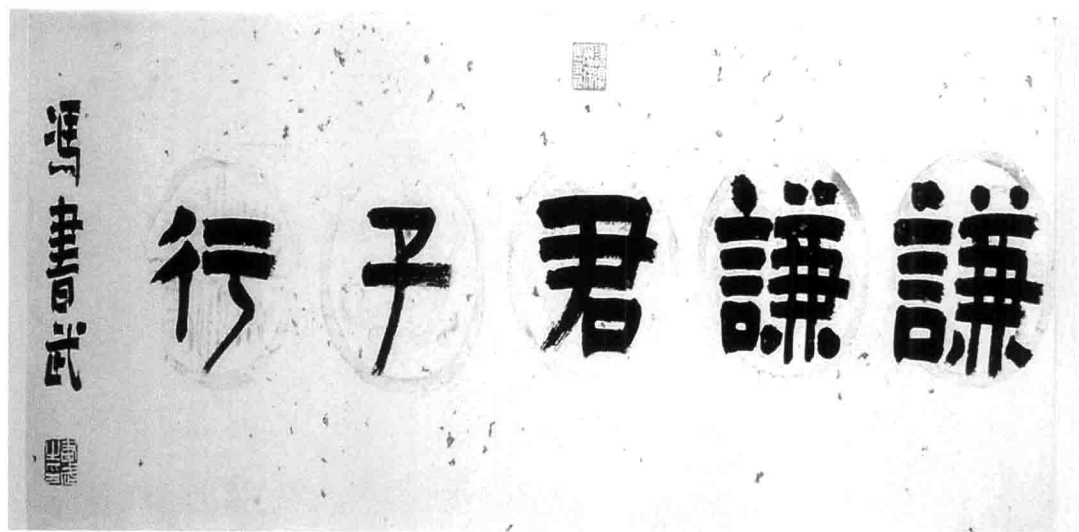 謙謙君子行
馮書武